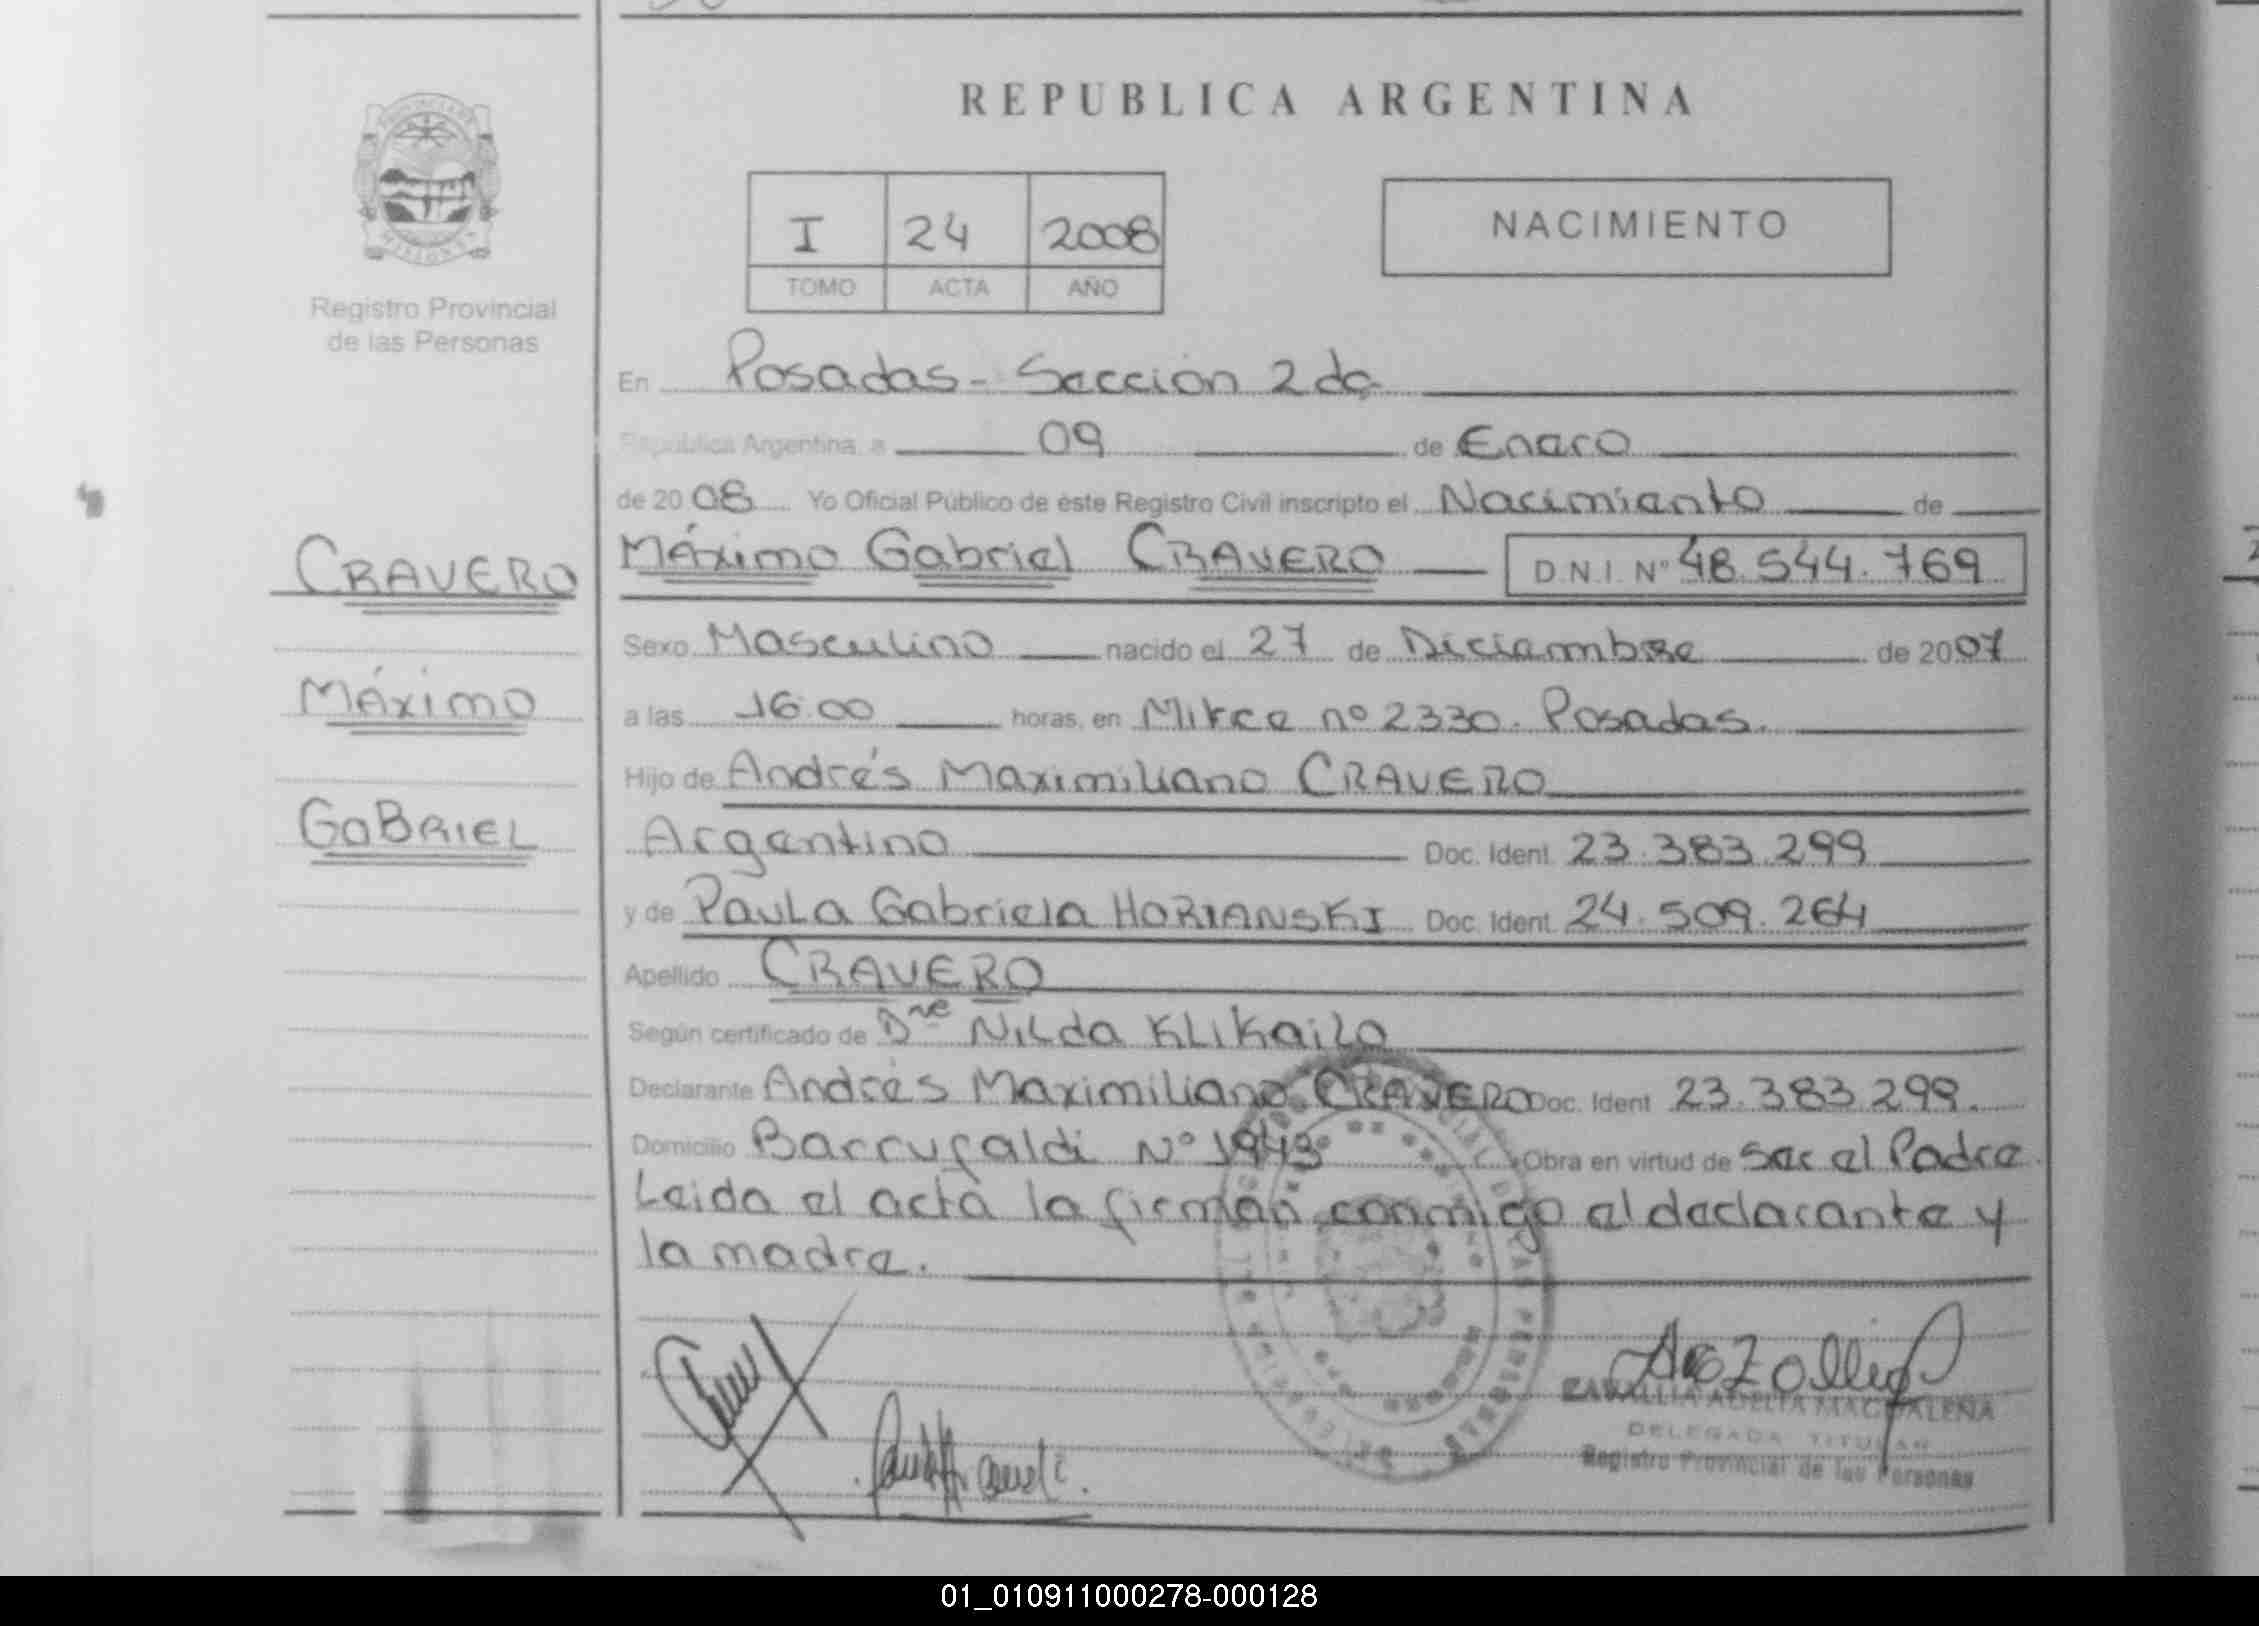 REPUBLICA ARGENTINA
PROVINCIA DE MISIONES
Registro Provincial
de las Personas
I 24 2008
TOMO ACTA AÑO
NACIMIENTO
En Posadas - Sección 2da
República Argentina, a 09 de Enero
de 2008 Yo Oficial Público de éste Registro Civil inscripto el Nacimiento de
CRAVERO
MÁXIMO
GABRIEL
Máximo Gabriel CRAVERO D.N.I. Nº 48.544.769
Sexo Masculino nacido el 27 de Diciembre de 2007
a las 16:00 horas, en Mitre nº 2330. Posadas.
Hijo de Andrés Maximiliano CRAVERO
Argentino Doc. Ident. 23.383.299
y de Paula Gabriela HORIANSKI Doc. Ident. 24.509.264
Apellido CRAVERO
Según certificado de Nilda
Declarante Andrés Maximiliano CRAVERO Doc. Ident. 23.383.299.
Domicilio Nº Obra en virtud de ser el Padre
Leida el acta la firman conmigo el declarante y
la madre.
ADELIA MAGDALENA
DELEGADA TITULAR
Registro Provincial de las Personas
01_010911000278-000128